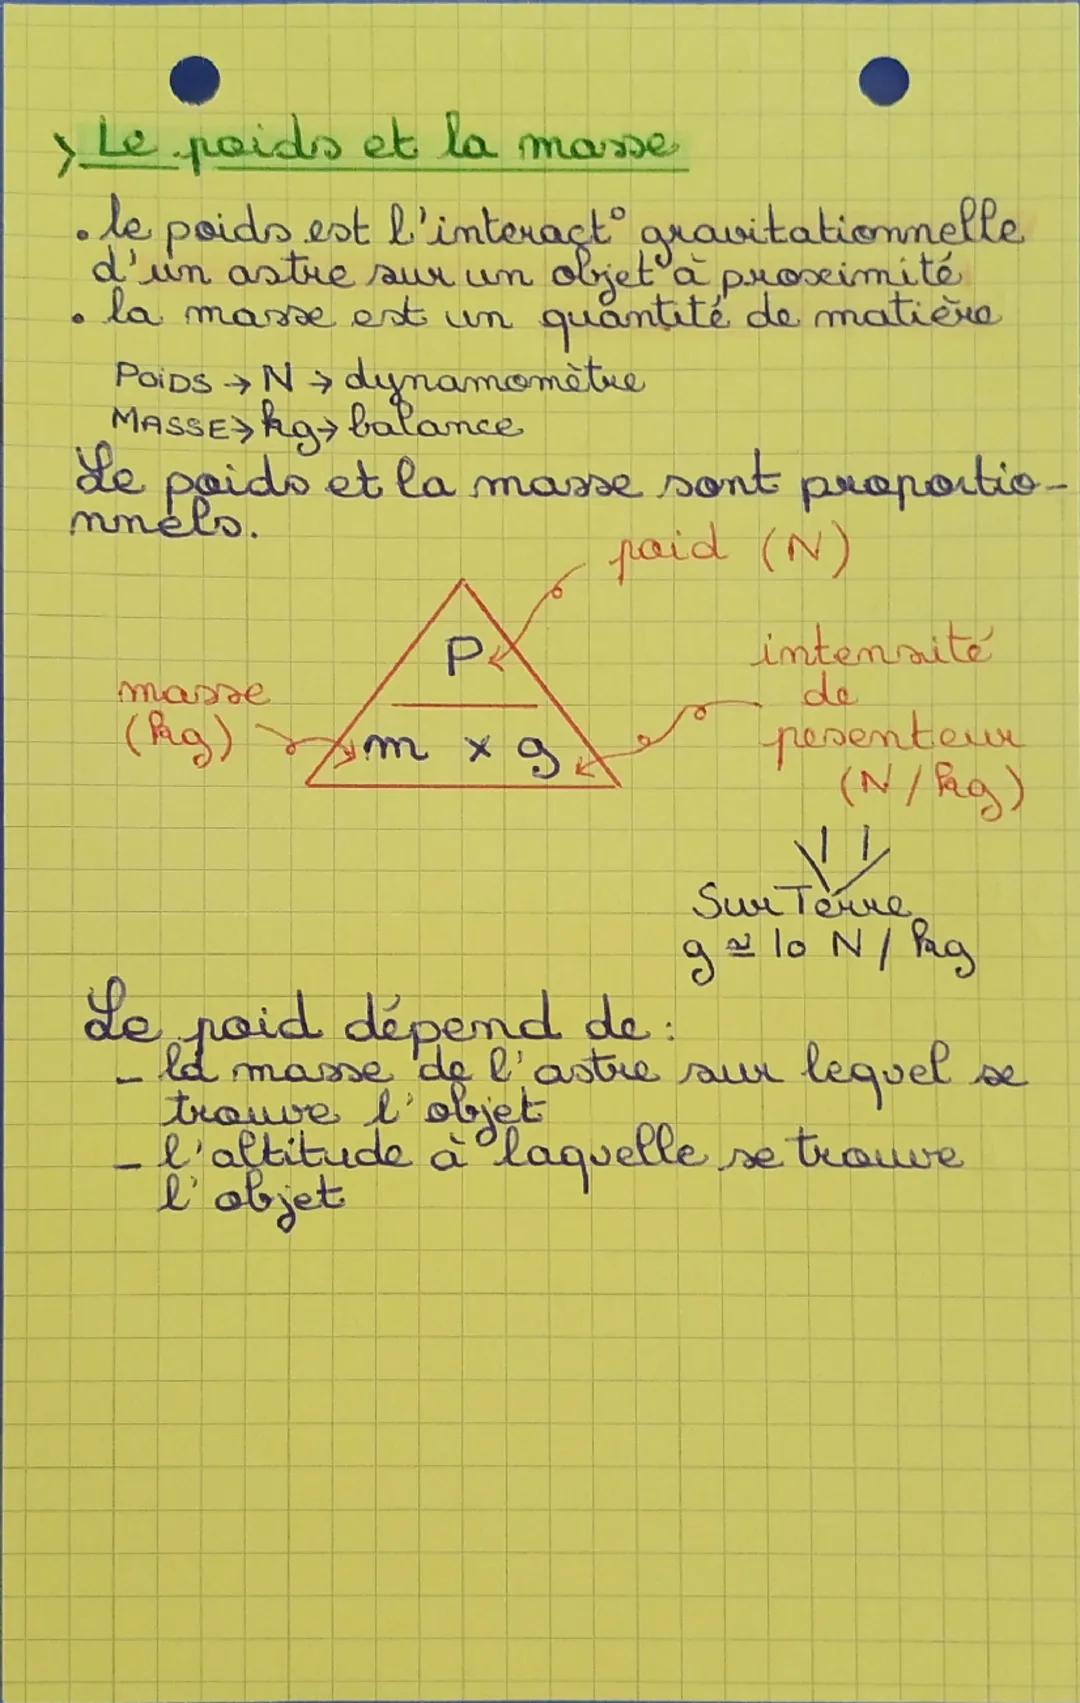 > Le poids et la masse
. le poids est l'interact° gravitationnelle
d'un astre sur un objet à proximité
. la masse est un quantité de matière
POIDS → N → dynamomètre
MASSE → kg → balance
Le poids et la masse sont proportio-
nnels.
poid (N)
P
intensité
de
pesenteur
(N/kg)
masse
(kg)
m x g
Sur Terre
g ≃ 10 N/kg
Le poid dépend de :
- la masse de l'astre sur lequel se
trouve l'objet
- l'altitude à laquelle se trouve
l'objet